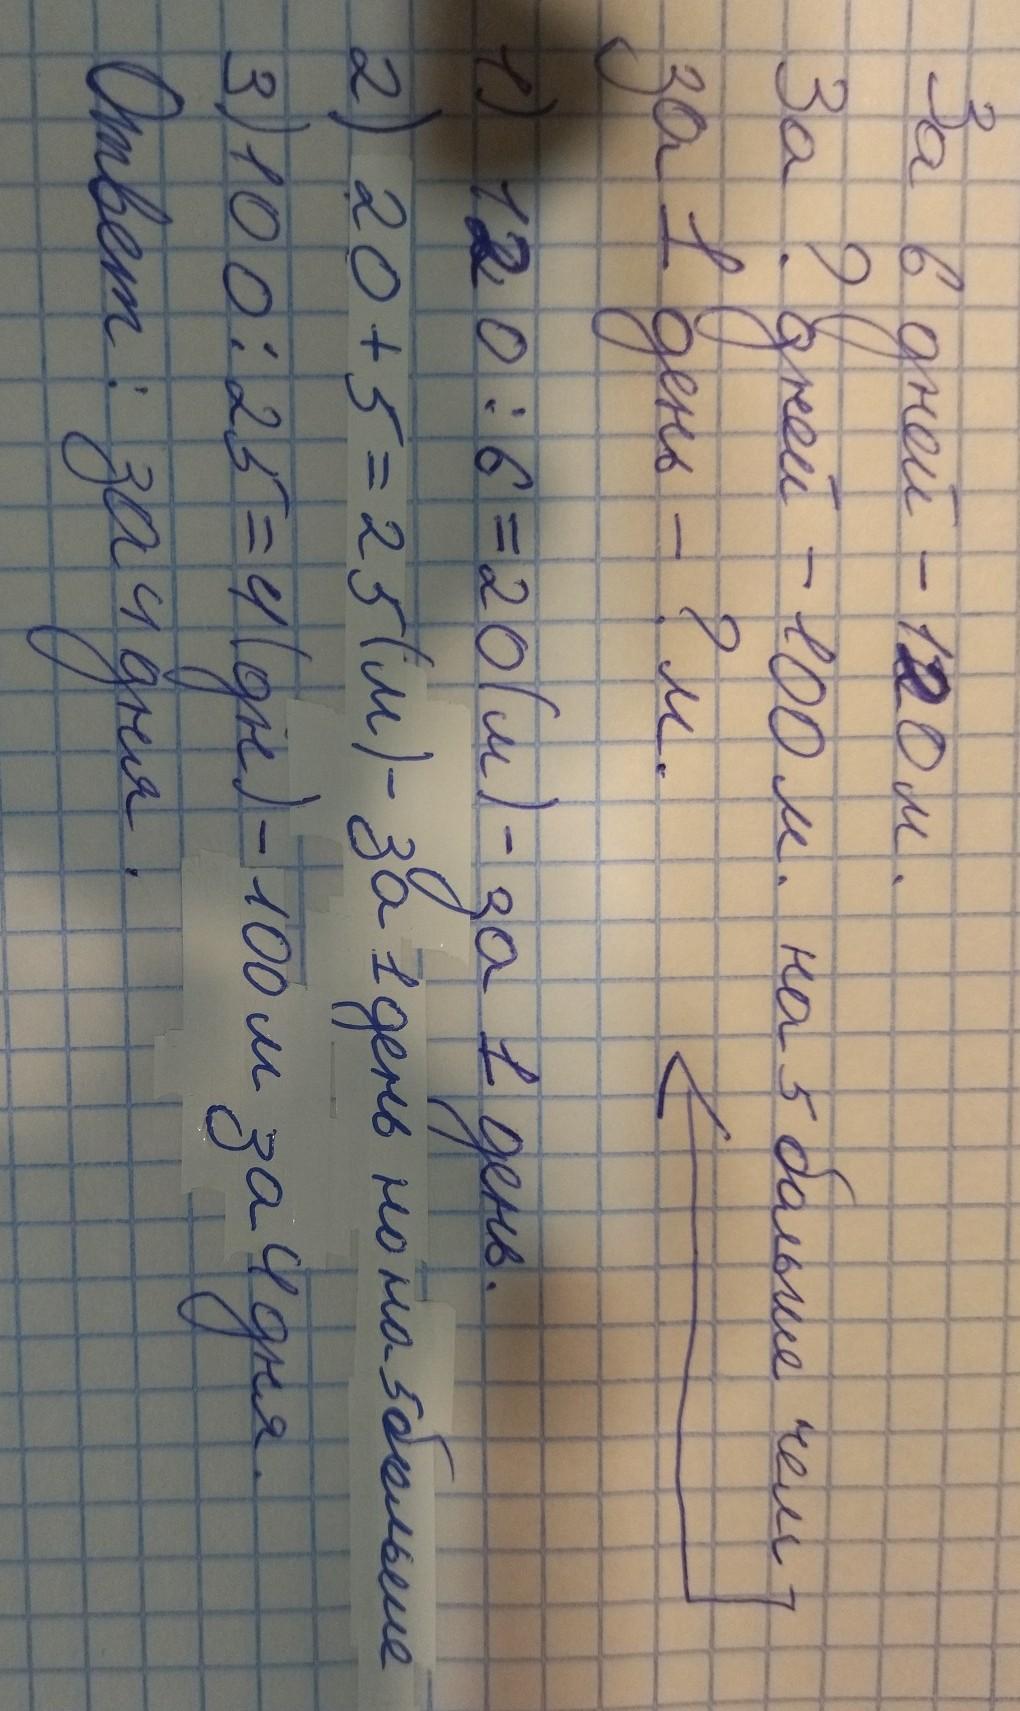 За 6 дней - 120 м.
За ? дней - 100 м. на 5 больше чем
за 1 день - ? м.
1) 120 : 6 = 20 (м) - за 1 день.
2) 20 + 5 = 25 (м) - за 1 день но на 5 больше
3) 100 : 25 = 4 (дн) - 100 м за 4 дня.
Ответ: за 4 дня.